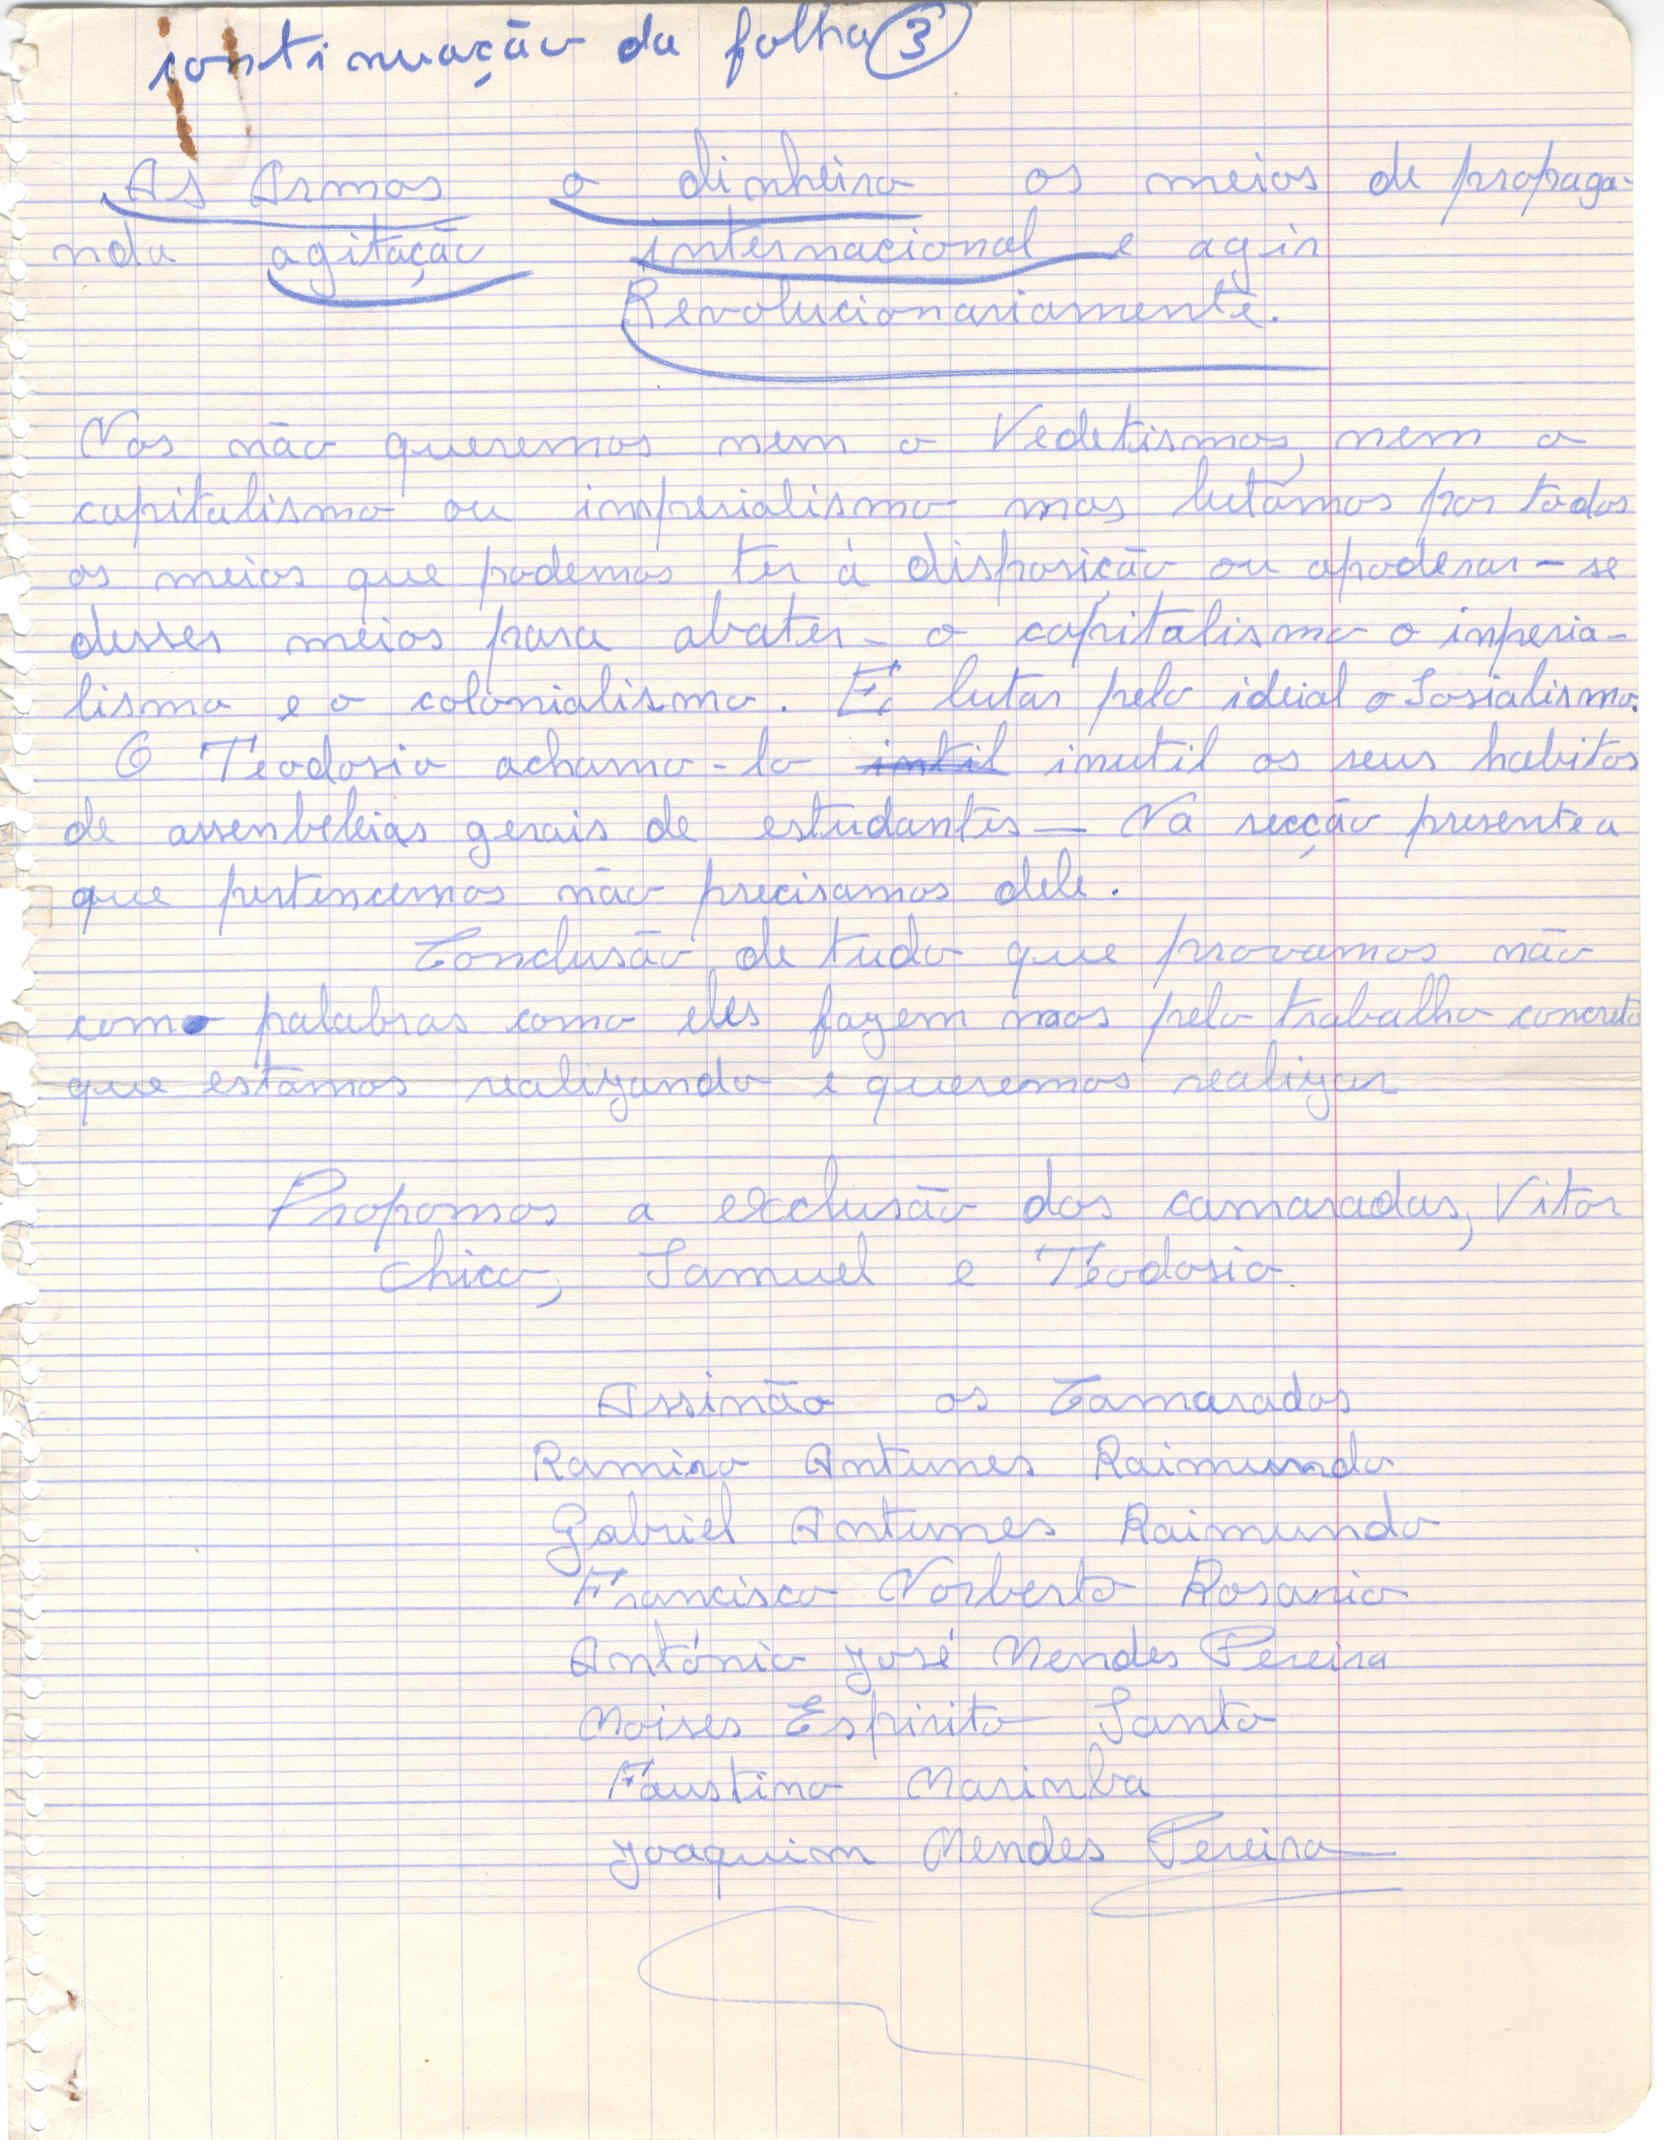 continuação da folha 3
As Armas o dinheiro os meios de propaga-
nda agitação internacional e agir
Revolucionariamente.
Nos não queremos nem o Vedetismos, nem o
capitalismo ou imperialismo mas lutamos por todos
os meios que podemos ter á disposição ou apoderar-se
desses meios para abater- o capitalismo o imperia-
lismo e o colonialismo. E lutar pelo ideial o Sosialismo.
O Teodosio achamo-lo intil inutil os seus habitos
de assenbeleias gerais de estudantes — Na secção presente a
que pertencemos não precisamos dele.
Conclusão de tudo que provamos não
como palabras como eles fazem mas pelo trabalho concreto
que estamos realizando e queremos realizar
Propomos a exclusão dos camaradas, Vitor
Chico, Samuel e Teodosio.
Assinão os Camaradas
Ramiro Antunes Raimundo
Gabriel Antunes Raimundo
Francisco Norberto Rosario
António José Mendes Pereira
Moises Espirito Santo
Faustino Marimba
Joaquim Mendes Pereira